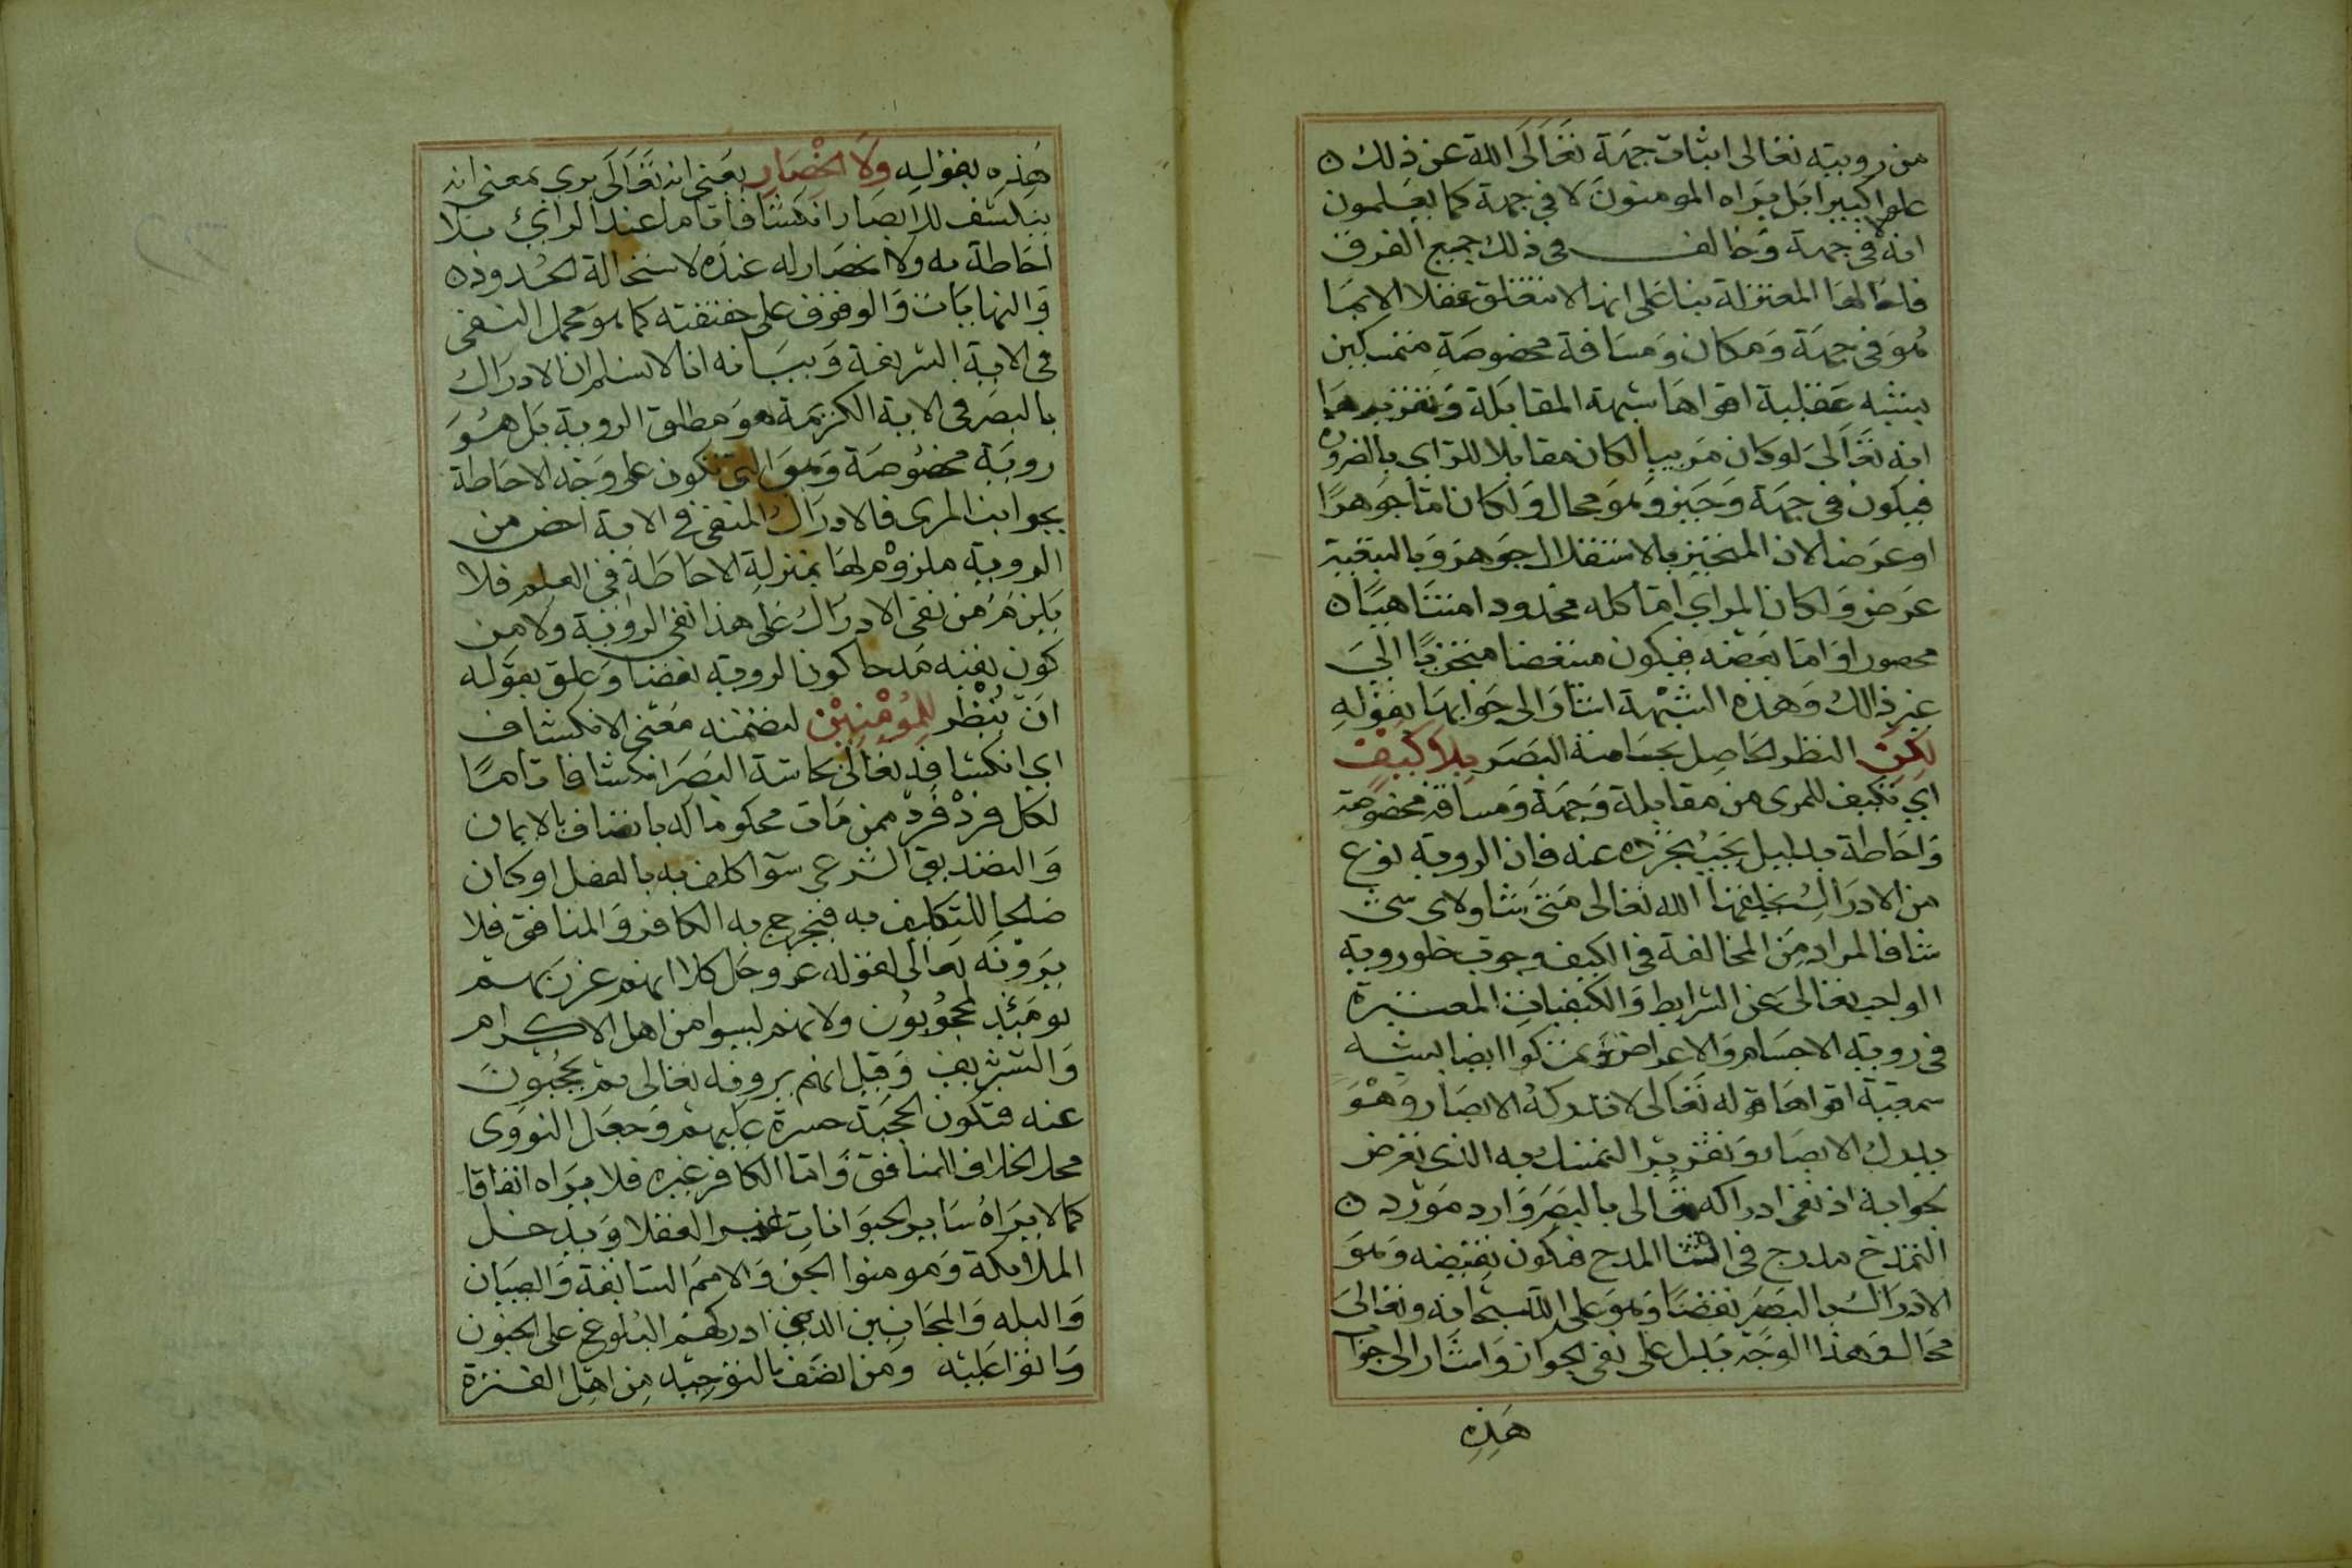 من رويته تعالى اثبات جهة تعالى الله عن ذلك
علوا كبيرا بل يراه المومنون لا في جهة كما يعلمون
انه لا في جهة وخالف في ذلك جميع الفرق
فاحالها المعتزلة بنا على انها لا تتعلق عقلا الا بما
هو في جهة ومكان ومسافة مخصوصة متمسكين
بشبه عقلية اقواها شبهة المقابلة وتقريرها
انه تعالى لو كان مرييا لكان مقابلا للراي بالضرورة
فيكون في جهة وحيز وهو محال ولكان اما جوهرا
او عرضا لان المتحيز بالاستقلال جوهر وبالتبعية
عرض ولكان المراي اما كله محدودا متناهيا
محصورا واما بعضه فيكون متبعضا متجزيا الى
غير ذالك وهذه الشبهة اشار الى جوابها بقوله
لكن النظر الحاصل بحاسة البصر بلا كيف
اي تكيف للمرى من مقابلة وجهة ومسافة مخصوصة
واحاطة بدليل يجب تجرده عنه فان الروية نوع
من الادراك يخلقها الله تعالى متى شا ولاى شى
شا فالمراد من المخالفة في الكيف وجوب خلو روية
الواجب تعالى عن الشرايط والكيفيات المعتبرة
في روية الاجسام والاعراض وتمسكوا ايضا بشبه
سمعية اقواها قوله تعالى لا تدركه الابصار وهو
يدرك الابصار وتقرير التمسك به الذى تعرض
لجوابه اذ نفى ادراكه تعالى بالبصر وارد مورد
التمدح مدرج في اثنا المدح فيكون نقيضه وهو
الادراك بالبصر نقصا وهو على الله سبحانه وتعالى
محال وهذا الوجه يدل على نفى الجواز واشار الى جواب
هذه
هذه بقوله ولا انحصار يعنى انه تعالى يرى بمعنى انه
ينكشف للابصار انكشافا تاما عند الراي بلا
احاطة به ولا انحصار له عنده لاستحالة الحدود
والنهايات والوقوف على حقيقته كما هو محمل النفى
في الاية الشريفة وبيانه انا لا نسلم ان الادراك
بالبصر في الاية الكريمة هو مطلق الروية بل هو
روية مخصوصة وهو التى تكون على وجه الاحاطة
بجوانب المرى فالادراك المنفى في الاية اخص من
الروية ملزوم لها بمنزلة الاحاطة في العلم فلا
يلزم من نفى الادراك على هذا نفى الروية ولا من
كون نفيه مدحا كون الروية نقصا وعلق بقوله
ان ينظر للمومنين لتضمنه معنى الانكشاف
اي انكشافه تعالى بحاسة البصر انكشافا تاما
لكل فرد فرد ممن مات محكوما له باتصاف بالايمان
والتصديق الشرعى سوا كلف به بالفعل او كان
صالحا للتكليف به فيخرج به الكافر والمنافق فلا
يرونه تعالى لقوله عز وجل كلا انهم عن ربهم
يومئذ لمحجوبون ولانهم ليسوا من اهل الاكرام
والتشريف وقيل انهم يرونه تعالى ثم يحجبون
عنه فتكون الحجبة حسرة عليهم وجعل النووى
محل الخلاف المنافق واما الكافر غيره فلا يراه اتفاقا
كما لا يراه ساير الحيوانات غير العقلا ويدخل
الملايكة ومومنوا الجن والامم السابقة والصبيان
والبله والمجانين الذين ادركهم البلوغ على الجنون
وماتوا عليه ومن اتصف بالتوحيد من اهل الفترة